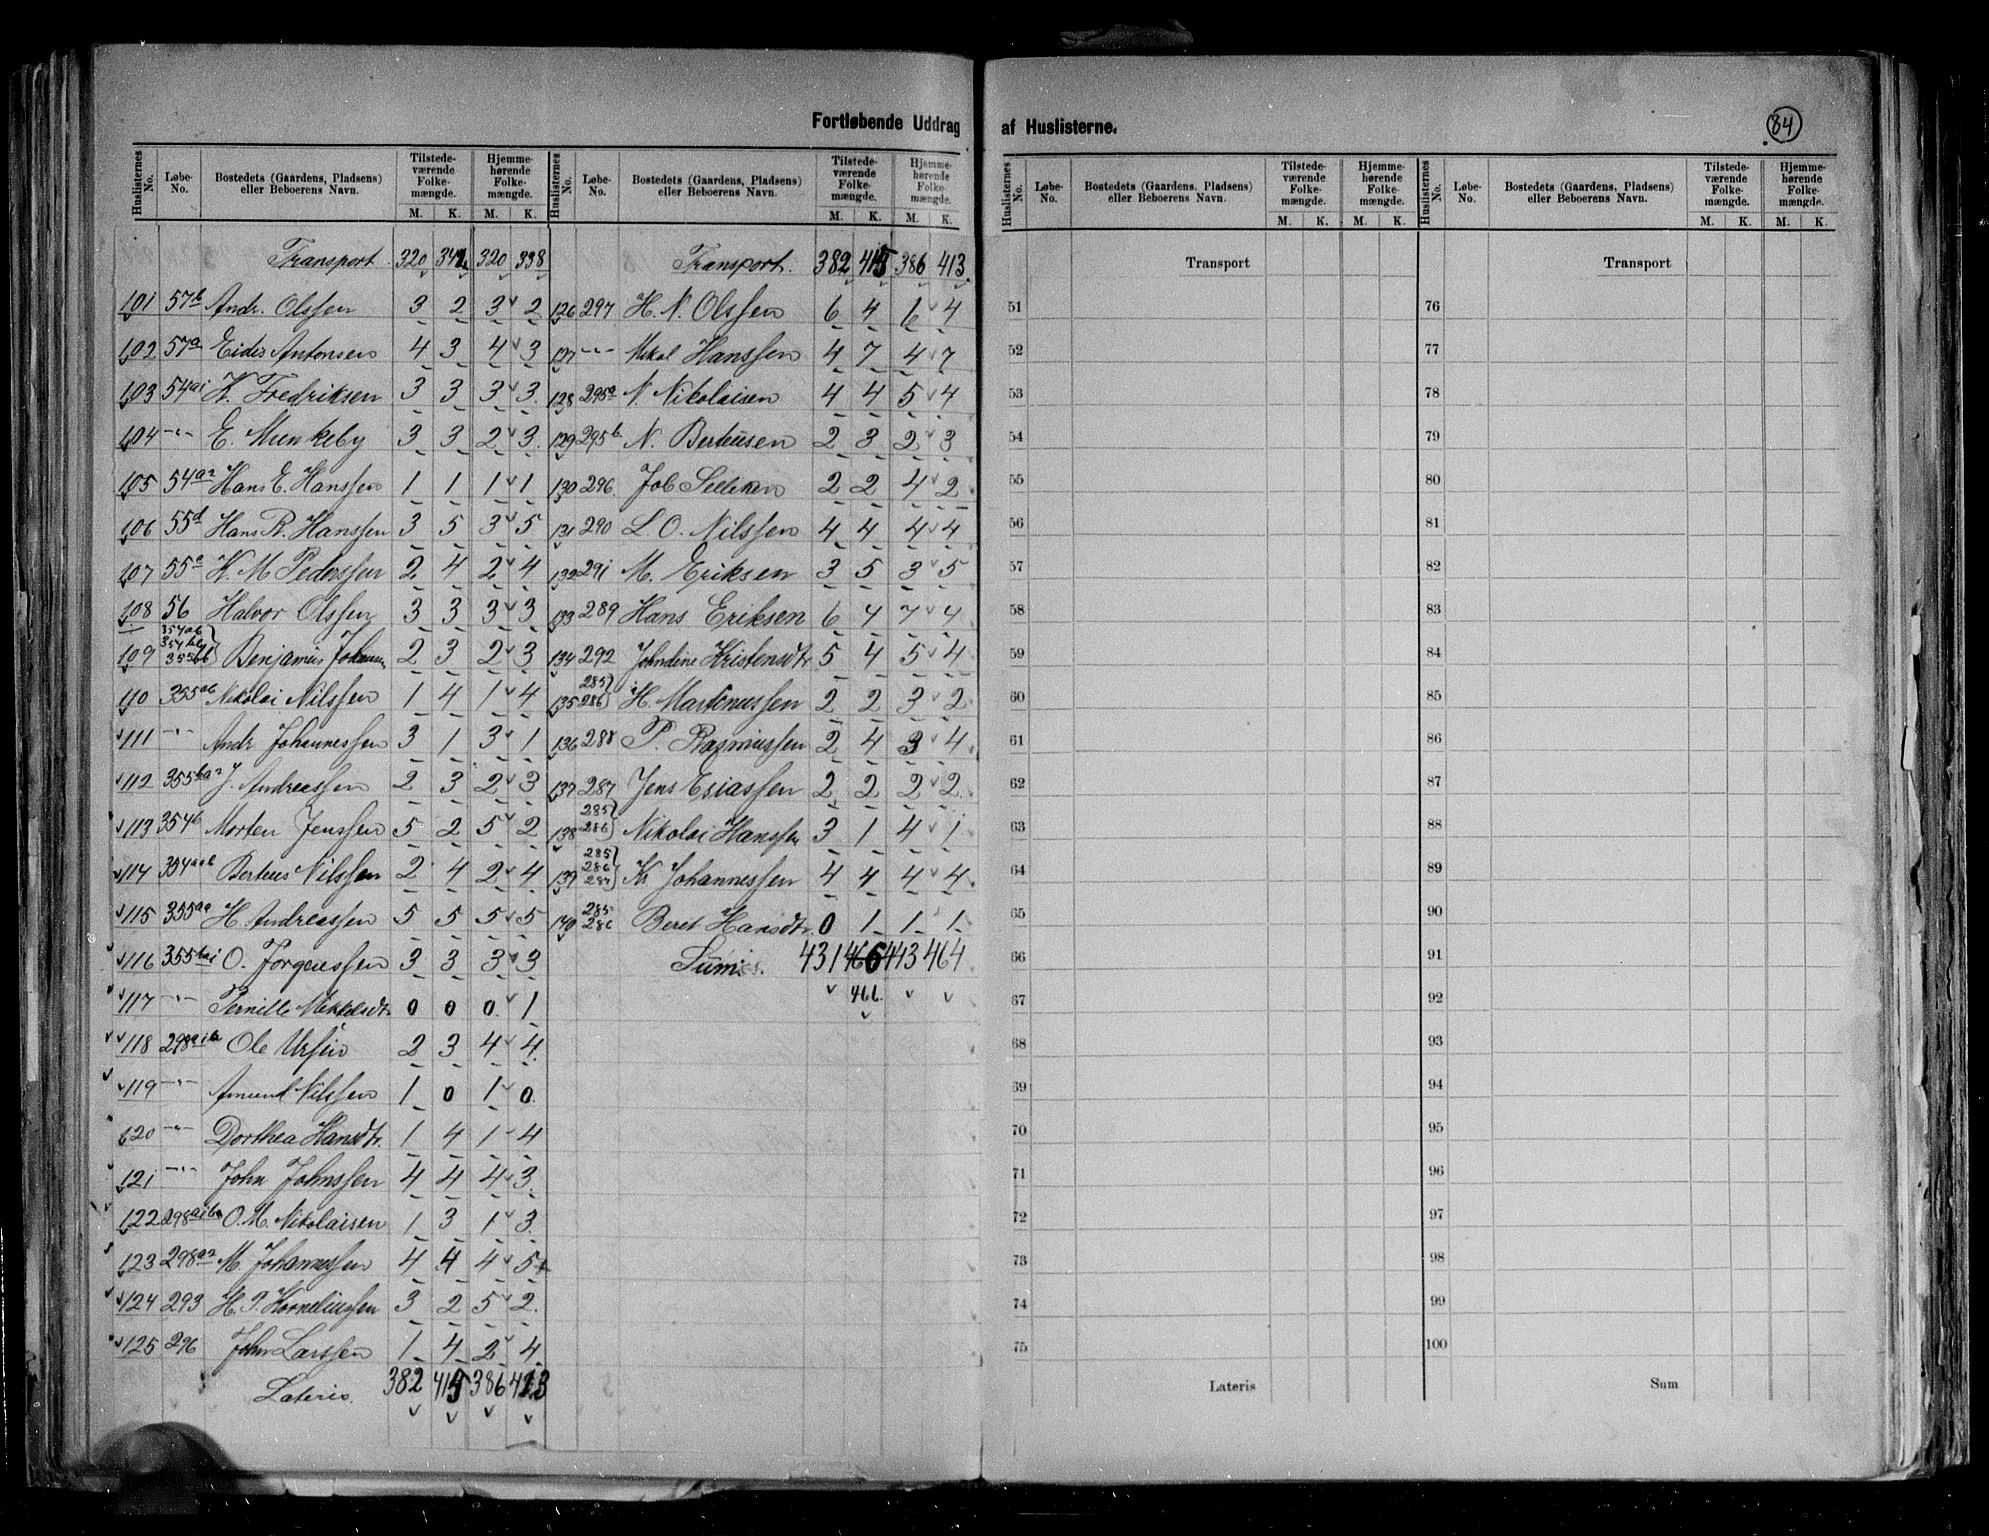 Fortløbende Uddrag af Huslisterne.
84
Huslisternes No. Løbe-No. Bostedets (Gaardens, Pladsens) eller Beboerens Navn. Tilstedeværende Folkemængde. M. K. Hjemmehørende Folkemængde. M. K.
Transport 320 342 320 338
101 57b Andr. Olssen 3 2 3 2
102 57a Eider Antonsen 4 3 4 3
103 54ai H. Fredriksen 3 3 3 3
104 -"- E. Munkeby 3 3 2 3
105 54a2 Hans E. Hanssen 1 1 1 1
106 55d Hans R. Hanssen 3 5 3 5
107 55a H. M Pederssen 2 4 2 4
108 56 Halvor Olssen 3 3 3 3
109 354ab 355bb Benjamin 2 3 2 3
110 355ab Nikolai Nilssen 1 4 1 4
111 -"- Andr Johannessen 3 1 3 1
112 355ba2 J. Andreassen 2 3 2 3
113 354b Morten Jenssen 5 2 5 2
114 354aab Berteus Nilssen 2 4 2 4
115 355aa H. Andreassen 5 5 5 5
116 355bai O. Jørgenssen 3 3 3 3
117 -"- Pernille Mikkelsdtr 0 0 0 1
118 298aib Ole Ursin 2 3 4 4
119 -"- Amund Nilssen 1 0 1 0
120 -"- Dorthea Hansdtr. 1 4 1 4
121 -"- John Johnssen 4 4 4 3
122 298aiba O. M. Nikolaisen 1 3 1 3
123 298a2 M. Johannessen 4 4 4 5
124 293 H. P. Korneliussen 3 2 5 2
125 296 John Larssen 1 4 2 4
Lateris. 382 415 386 413
Huslisternes No. Løbe-No. Bostedets (Gaardens, Pladsens) eller Beboerens Navn. Tilstedeværende Folkemængde. M. K. Hjemmehørende Folkemængde. M. K.
Transport. 382 415 386 413
126 297 H. N. Olssen 6 4 6 4
127 -"- Mikal Hanssen 4 7 4 7
128 295a N Nikolaisen 4 4 5 4
129 295b. N. Berteusen 2 3 2 3
130 296. Job 2 2 4 2
131 290 L. O. Nilssen 4 4 4 4
132 291 M. Eriksen 3 5 3 5
133 289 Hans Eriksen 6 4 7 4
134 292 Johndine Kristensdtr 5 4 5 4
135 285 286 H. Martinussen 2 2 3 2
136 288 P. Rasmussen 2 4 3 4
137 287 Jens Esiassen 2 2 2 2
138 285 286 Nikolai Hanssen 3 1 4 1
139 285 286 287 Kr Johannessen 4 4 4 4
140 285 286 Beret Hansdtr. 0 1 1 1
431 466 443 464
466.
Huslisternes No. Løbe-No. Bostedets (Gaardens, Pladsens) eller Beboerens Navn. Tilstedeværende Folkemængde. M. K. Hjemmehørende Folkemængde. M. K.
Transport
51
52
53
54
55
56
57
58
59
60
61
62
63
64
65
66
67
68
69
70
71
72
73
74
75
Lateris
Huslisternes No. Løbe-No. Bostedets (Gaardens, Pladsens) eller Beboerens Navn. Tilstedeværende Folkemængde. M. K. Hjemmehørende Folkemængde. M. K.
Transport
76
77
78
79
80
81
82
83
84
85
86
87
88
89
90
91
92
93
94
95
96
97
98
99
100
Sum